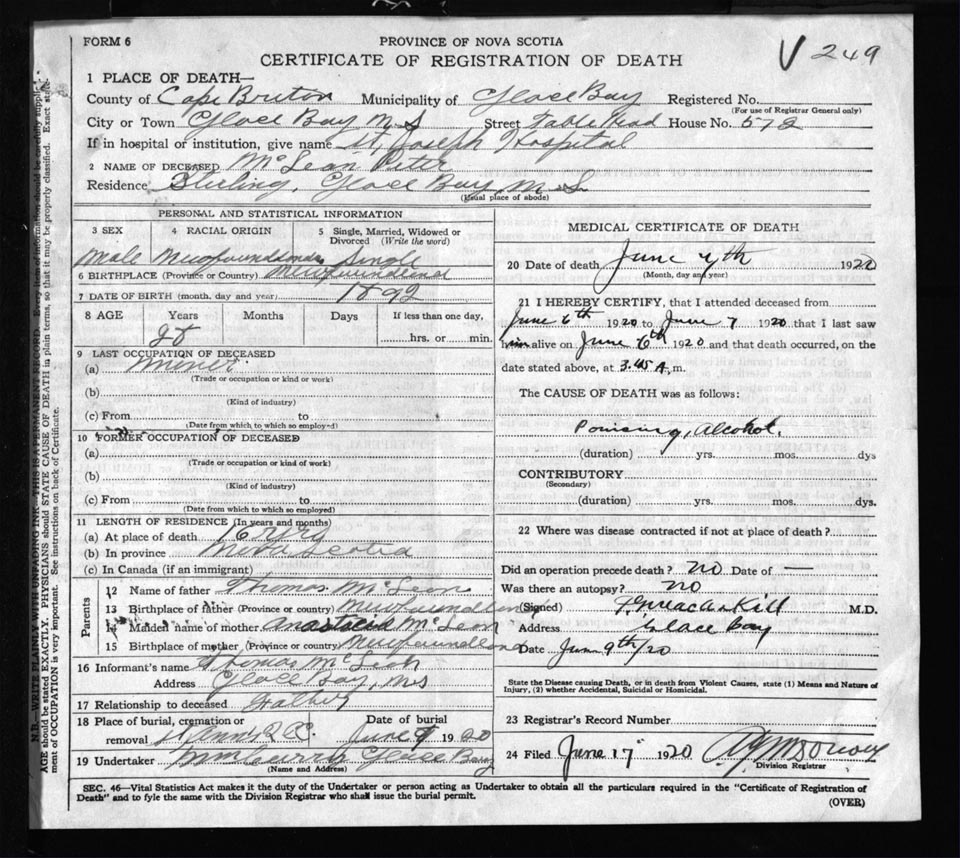 FORM 6
PROVINCE OF NOVA SCOTIA
V 249
CERTIFICATE OF REGISTRATION OF DEATH
1 PLACE OF DEATH—
County of Cape Breton Municipality of Glace Bay Registered No.
(For use of Registrar General only)
City or Town Glace Bay N S Street Table Head House No. 572
If in hospital or institution, give name St Joseph Hospital
2 NAME OF DECEASED McLean Peter
Residence Sterling, Glace Bay, N S
(Usual place of abode)
PERSONAL AND STATISTICAL INFORMATION
3 SEX 4 RACIAL ORIGIN 5 Single, Married, Widowed or Divorced (Write the word)
Male Single
6 BIRTHPLACE (Province or Country) Newfoundland
7 DATE OF BIRTH (month, day and year) 1892
8 AGE Years Months Days If less than one day,
28 hrs. or min.
9 LAST OCCUPATION OF DECEASED
(a) Miner
(Trade or occupation or kind or work)
(b)
(Kind of industry)
(c) From to
(Date from which to which so employed)
10 FORMER OCCUPATION OF DECEASED
(a)
(Trade or occupation or kind of work)
(b)
(Kind of industry)
(c) From to
(Date from which to which so employed)
11 LENGTH OF RESIDENCE (In years and months)
(a) At place of death
(b) In province Nova Scotia
(c) In Canada (if an immigrant)
Parents
12 Name of father Thomas McLean
13 Birthplace of father (Province or country) Newfoundland
14 Maiden name of mother Anastacia McLean
15 Birthplace of mother (Province or country) Newfoundland
16 Informant's name Thomas McLean
Address Glace Bay, N S
17 Relationship to deceased Father
18 Place of burial, cremation or removal Date of burial
June 9 1920
19 Undertaker Glace Bay
(Name and Address)
MEDICAL CERTIFICATE OF DEATH
20 Date of death June 7th 1920
(Month, day and year)
21 I HEREBY CERTIFY, that I attended deceased from
June 6th 1920 to June 7 1920 that I last saw
him alive on June 6th 1920 and that death occurred, on the
date stated above, at 3.45 A. m.
The CAUSE OF DEATH was as follows:
Poisoning, Alcohol.
(duration) yrs. mos. dys
CONTRIBUTORY
(Secondary)
(duration) yrs. mos. dys.
22 Where was disease contracted if not at place of death?
Did an operation precede death? no Date of —
Was there an autopsy? no
(Signed) M.D.
Address Glace Bay
Date June 9th/20
State the Disease causing Death, or in death from Violent Causes, state (1) Means and Nature of
Injury, (2) whether Accidental, Suicidal or Homicidal.
23 Registrar's Record Number
24 Filed June 17 1920
Division Registrar
SEC. 46—Vital Statistics Act makes it the duty of the Undertaker or person acting as Undertaker to obtain all the particulars required in the "Certificate of Registration of
Death" and to fyle the same with the Division Registrar who shall issue the burial permit.
(OVER)
N.B.—WRITE PLAINLY WITH UNFADING INK—THIS IS A PERMANENT RECORD. Every item of information should be carefully supplied.
AGE should be stated EXACTLY. PHYSICIANS should STATE CAUSE OF DEATH in plain terms, so that it may be properly classified. Exact state-
ment of OCCUPATION is very important. See instructions on back of Certificate.